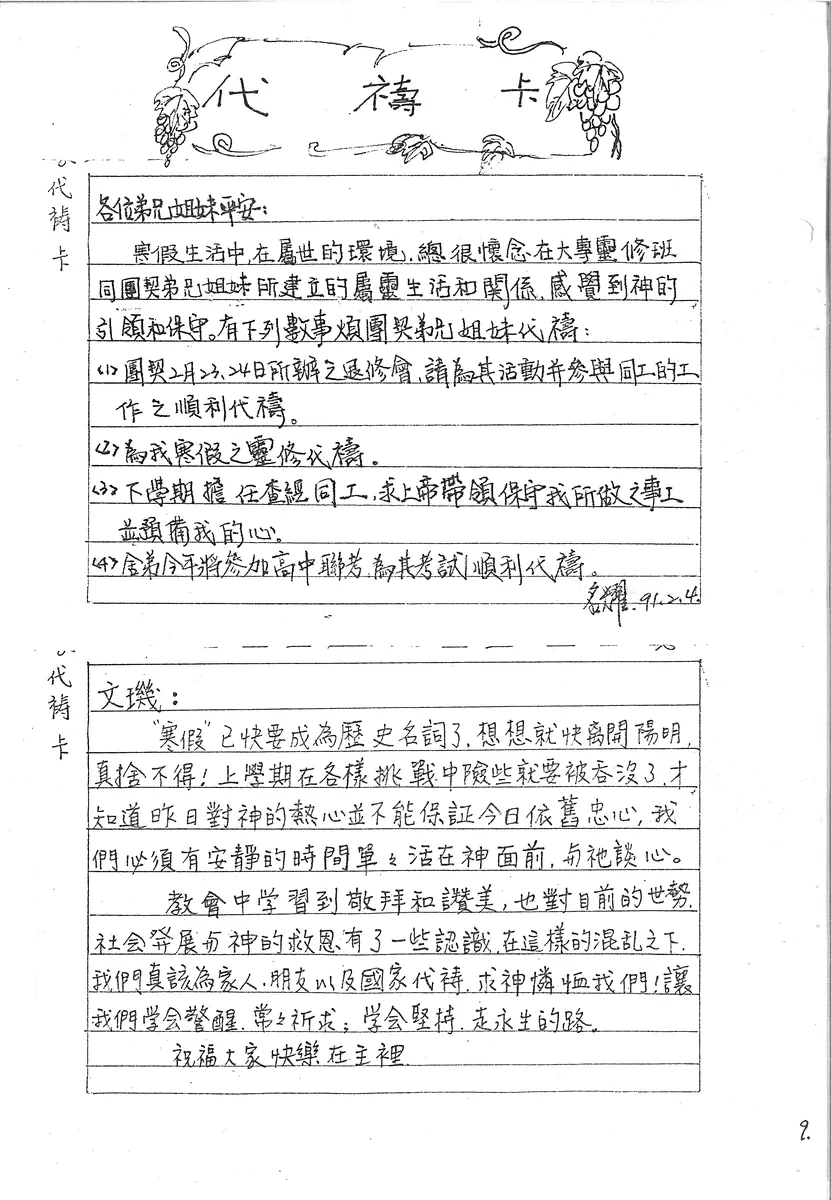 代禱卡
代禱卡
各位弟兄姐妹平安：
寒假生活中,在屬世的環境,總很懷念在大專靈修班
同團契弟兄姐妹所建立的屬靈生活和關係,感覺到神的
引領和保守。有下列數事煩團契弟兄姐妹代禱：
(1)團契2月23、24日所辦之退修會,請為其活動并參與同工的工
作之順利代禱。
(2)為我寒假之靈修代禱。
(3)下學期擔任查經同工,求上帝帶領保守我所做之事工
並預備我的心。
(4)舍弟今年將參加高中聯考,為其考試順利代禱。
名耀.91.2.4.
代禱卡
文璣：
"寒假"已快要成為歷史名詞了,想想就快离開陽明,
真捨不得！上學期在各樣挑戰中險些就要被吞沒了,才
知道昨日對神的熱心並不能保証今日依舊忠心,我
們必須有安靜的時間單々活在神面前,与祂談心。
教會中学習到敬拜和讚美,也對目前的世勢.
社会發展与神的救恩有了一些認識,在這樣的混乱之下.
我們真該為家人.朋友以及國家代禱.求神憐恤我們！讓
我們学会警醒.常々祈求；学会堅持.走永生的路。
祝福大家快樂在主裡
9.